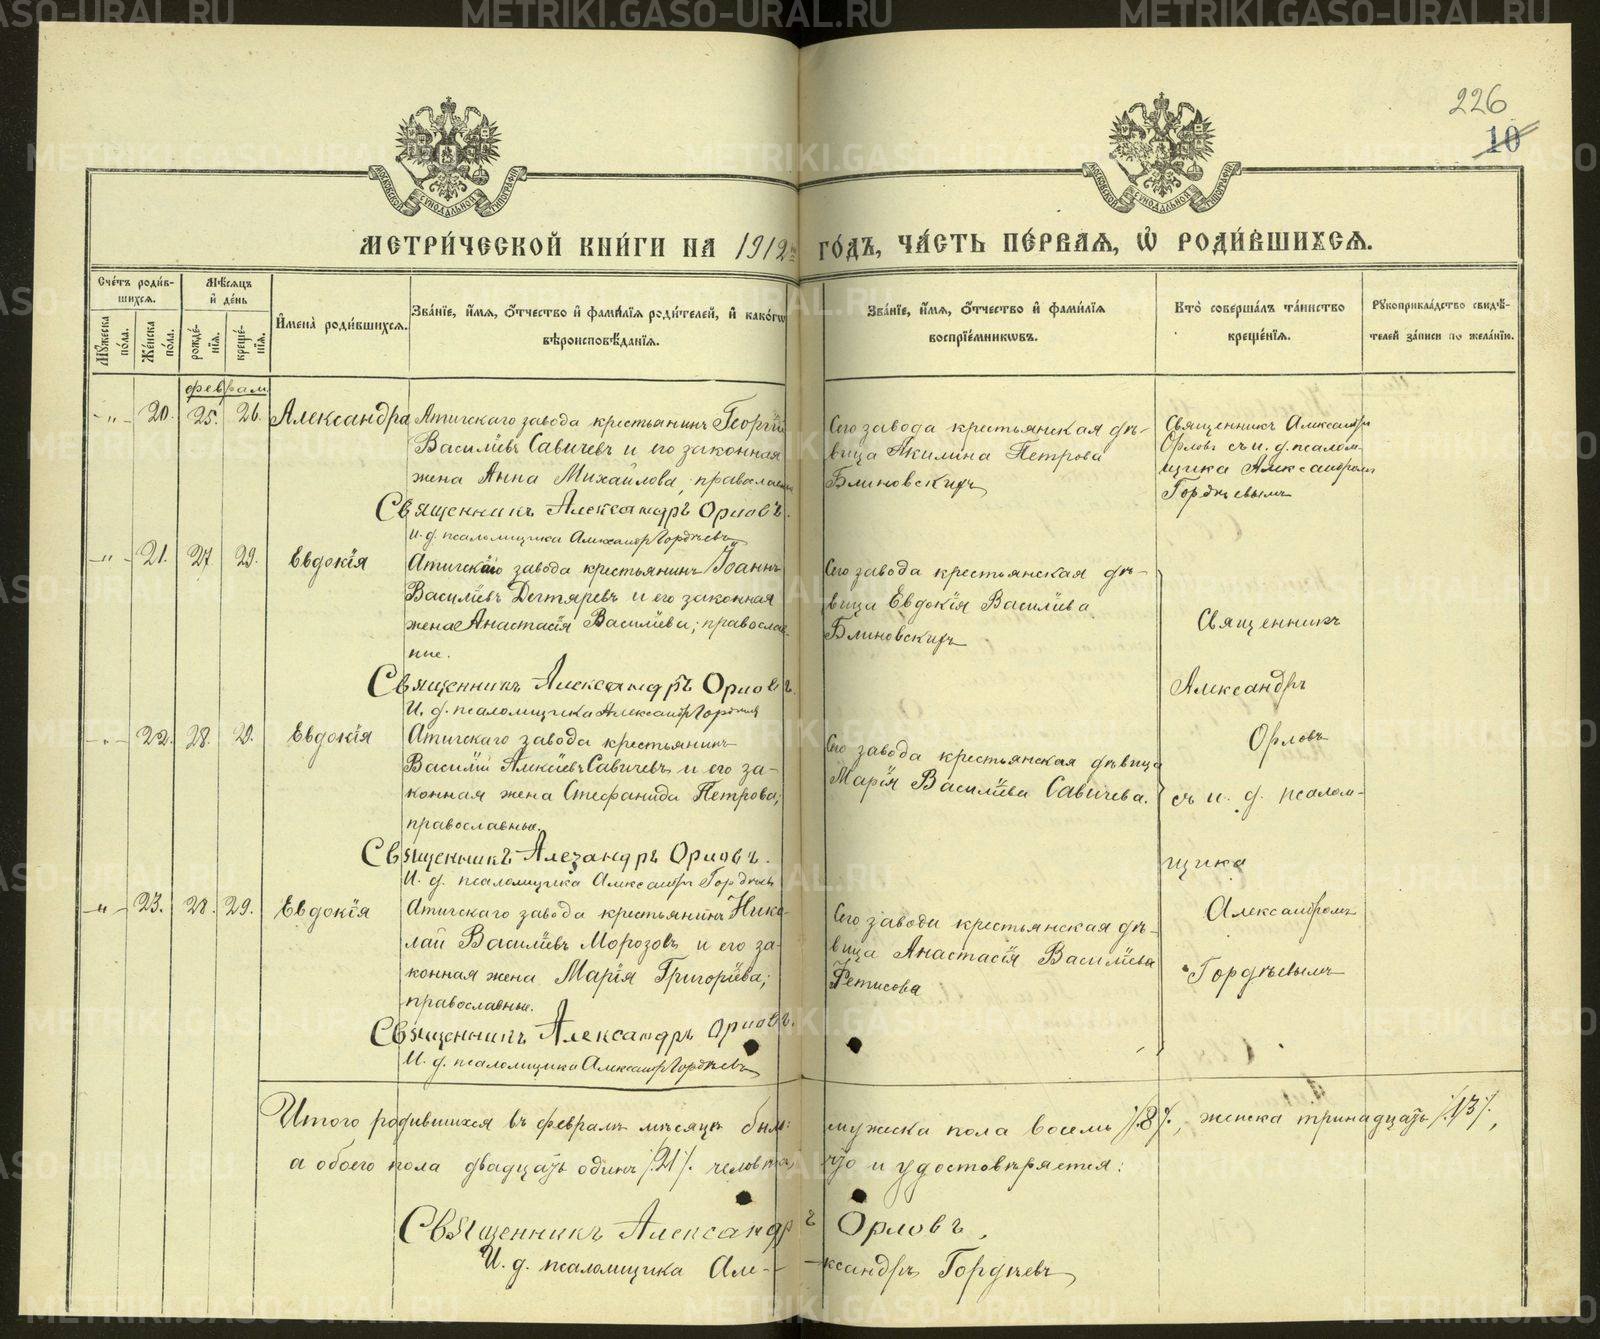 METRIKI.GASO-URAL.RU
226
10
МОСКОВСКОЙ СѴНОДАЛЬНОЙ ТИПОГРАФІИ
МОСКОВСКОЙ СѴНОДАЛЬНОЙ ТИПОГРАФІИ
МЕТРИ́ЧЕСКОЙ КНИ́ГИ НА 1912 ГО́ДЪ, ЧА́СТЬ ПЕ́РВАѦ, Ѡ҆ РОДИ́ВШИХСѦ.
Сче́тъ роди́в-
шихсѧ.
Мꙋ́жеска по́ла.
Же́нска по́ла.
Мѣ́сѧцъ
и҆ де́нь
рожде́-
нїѧ.
креще́-
нїѧ.
И҆мена̀ роди́вшихсѧ.
Зва́нїе, и҆́мѧ, ѻ҆́тчество и҆ фами́лїѧ роди́телей, и҆ како́гѡ
вѣроисповѣ́данїѧ.
Зва́нїе, и҆́мѧ, ѻ҆́тчество и҆ фами́лїѧ
воспрїе́мникѡвъ.
Кто̀ соверша́лъ та́инство
креще́нїѧ.
Рꙋкоприкла́дство свидѣ́-
телей за́писи по жела́нїю.
февраль
-"- 20. 25. 26. Александра
Атигскаго завода крестьянинъ Георгій
Василіевъ Савичевъ и его законная
жена Анна Михайлова, православные
Священникъ Александръ Орловъ.
И. д. псаломщика Александръ Гордѣевъ
Сего завода крестьянская дѣ-
вица Акилина Петрова
Блиновскихъ
Священникъ Александръ
Орловъ съ и. д. псалом-
щика Александромъ
Гордѣевымъ
-"- 21. 27 29. Евдокія
Атигскаго завода крестьянинъ Іоаннъ
Василіевъ Дегтяревъ и его законная
жена Анастасія Василіева; православ-
ные.
Священникъ Александръ Орловъ.
И. д. псаломщика Александръ Гордѣевъ
Сего завода крестьянская дѣ-
вица Евдокія Василіева
Блиновскихъ
-"- 22. 28. 29. Евдокія
Атигскаго завода крестьянинъ
Василій Алексіевъ Савичевъ и его за-
конная жена Стефанида Петрова;
православные.
Священникъ Алезандръ Орловъ.
И. д. псаломщика Александръ Гордѣевъ
Сего завода крестьянская дѣвица
Марія Василіева Савичева.
-"- 23. 28. 29. Евдокія
Атигскаго завода крестьянинъ Нико-
лай Василіевъ Морозовъ и его за-
конная жена Марія Григоріева;
православные.
Священникъ Александръ Орловъ.
И. д. псаломщика Александръ Гордѣевъ
Сего завода крестьянская дѣ-
вица Анастасія Василіева
Фетисова
Священникъ
Александръ
Орловъ
съ и. д. псалом-
щика
Александромъ
Гордѣевымъ
Итого родившихся въ февралѣ мѣсяцѣ был: мужеска пола восемь /.8/., женска тринадцать /.13/.,
а обоего пола двадцать одинъ /.21/. человѣкъ, что и удостовѣряется:
Священникъ Александръ Орловъ.
И. д. псаломщика Але--ксандръ Гордѣевъ